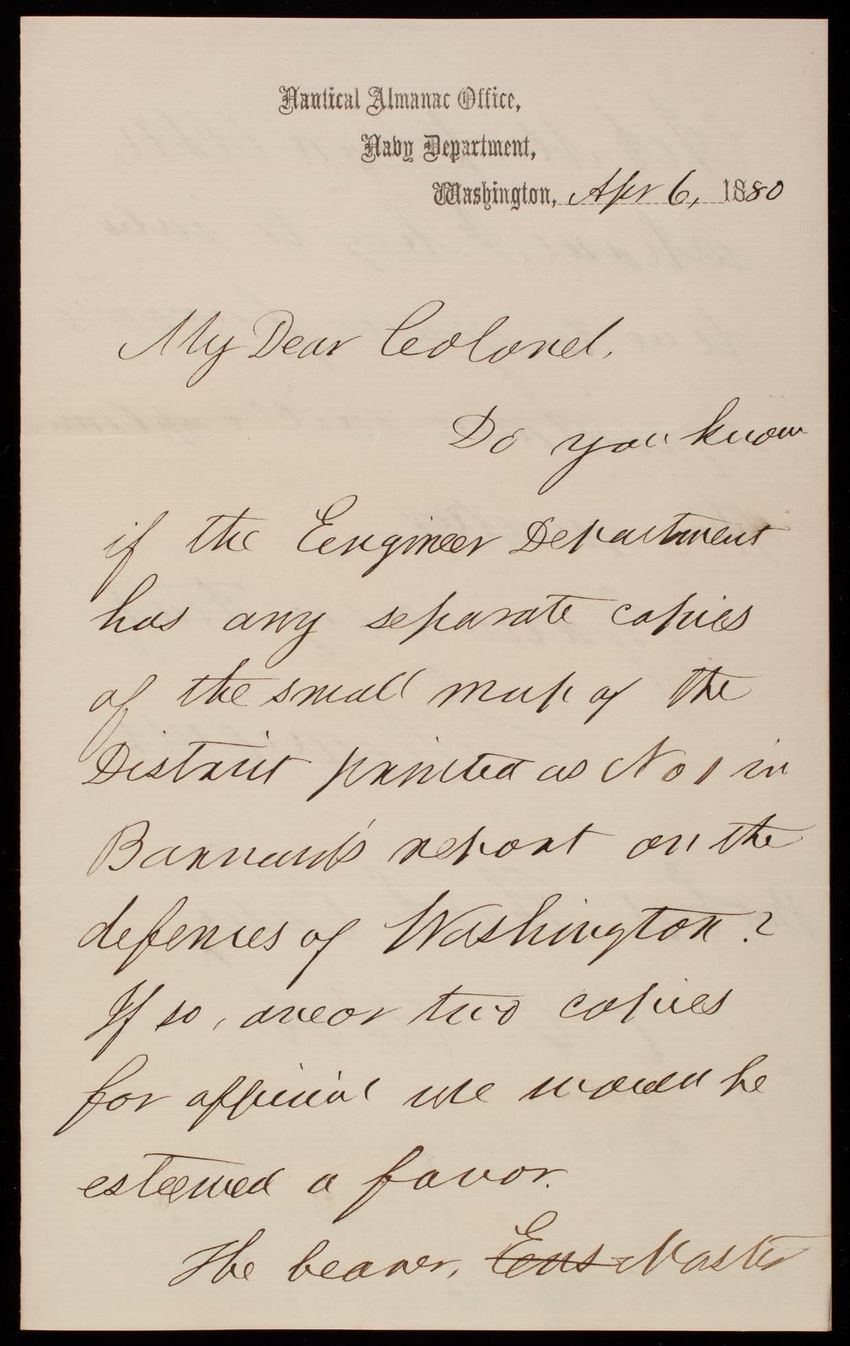 Nautical Almanac Office,
Navy Department,
Washington, Apr 6, 1880
My Dear Colonel,
Do you know
if the Engineer Department
has any separate copies
of the small map of the
District printed as No 1 in
Barnard's report on the
defences of Washington?
If so, one or two copies
for official use would be
esteemed a favor.
The bearer, Ens Master